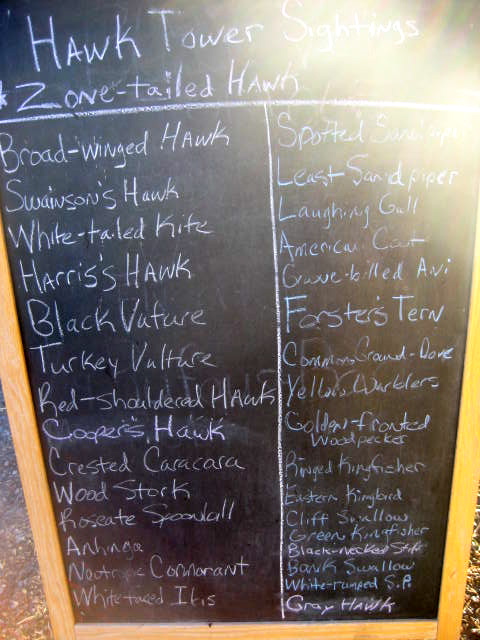 Hawk Tower Sightings
* Zone-tailed Hawk
Broad-winged Hawk
Swainson's Hawk
White-tailed Kite
Harris's Hawk
Black Vuture
Turkey Vulture
Red-shouldered Hawk
Cooper's Hawk
Crested Caracara
Wood Stork
Roseate Spoonbill
Anhinga
Neotropic Cormorant
White-faced Ibis
Spotted Sandpiper
Least Sandpiper
Laughing Gull
American Coot
Groove-billed Ani
Forster's Tern
Common Ground-Dove
Yellow Warblers
Golden-fronted
Woodpecker
Ringed Kingfisher
Eastern Kingbird
Cliff Swallow
Green Kingfisher
Black-necked Stilt
Bank Swallow
White-rumped S.P.
Gray Hawk